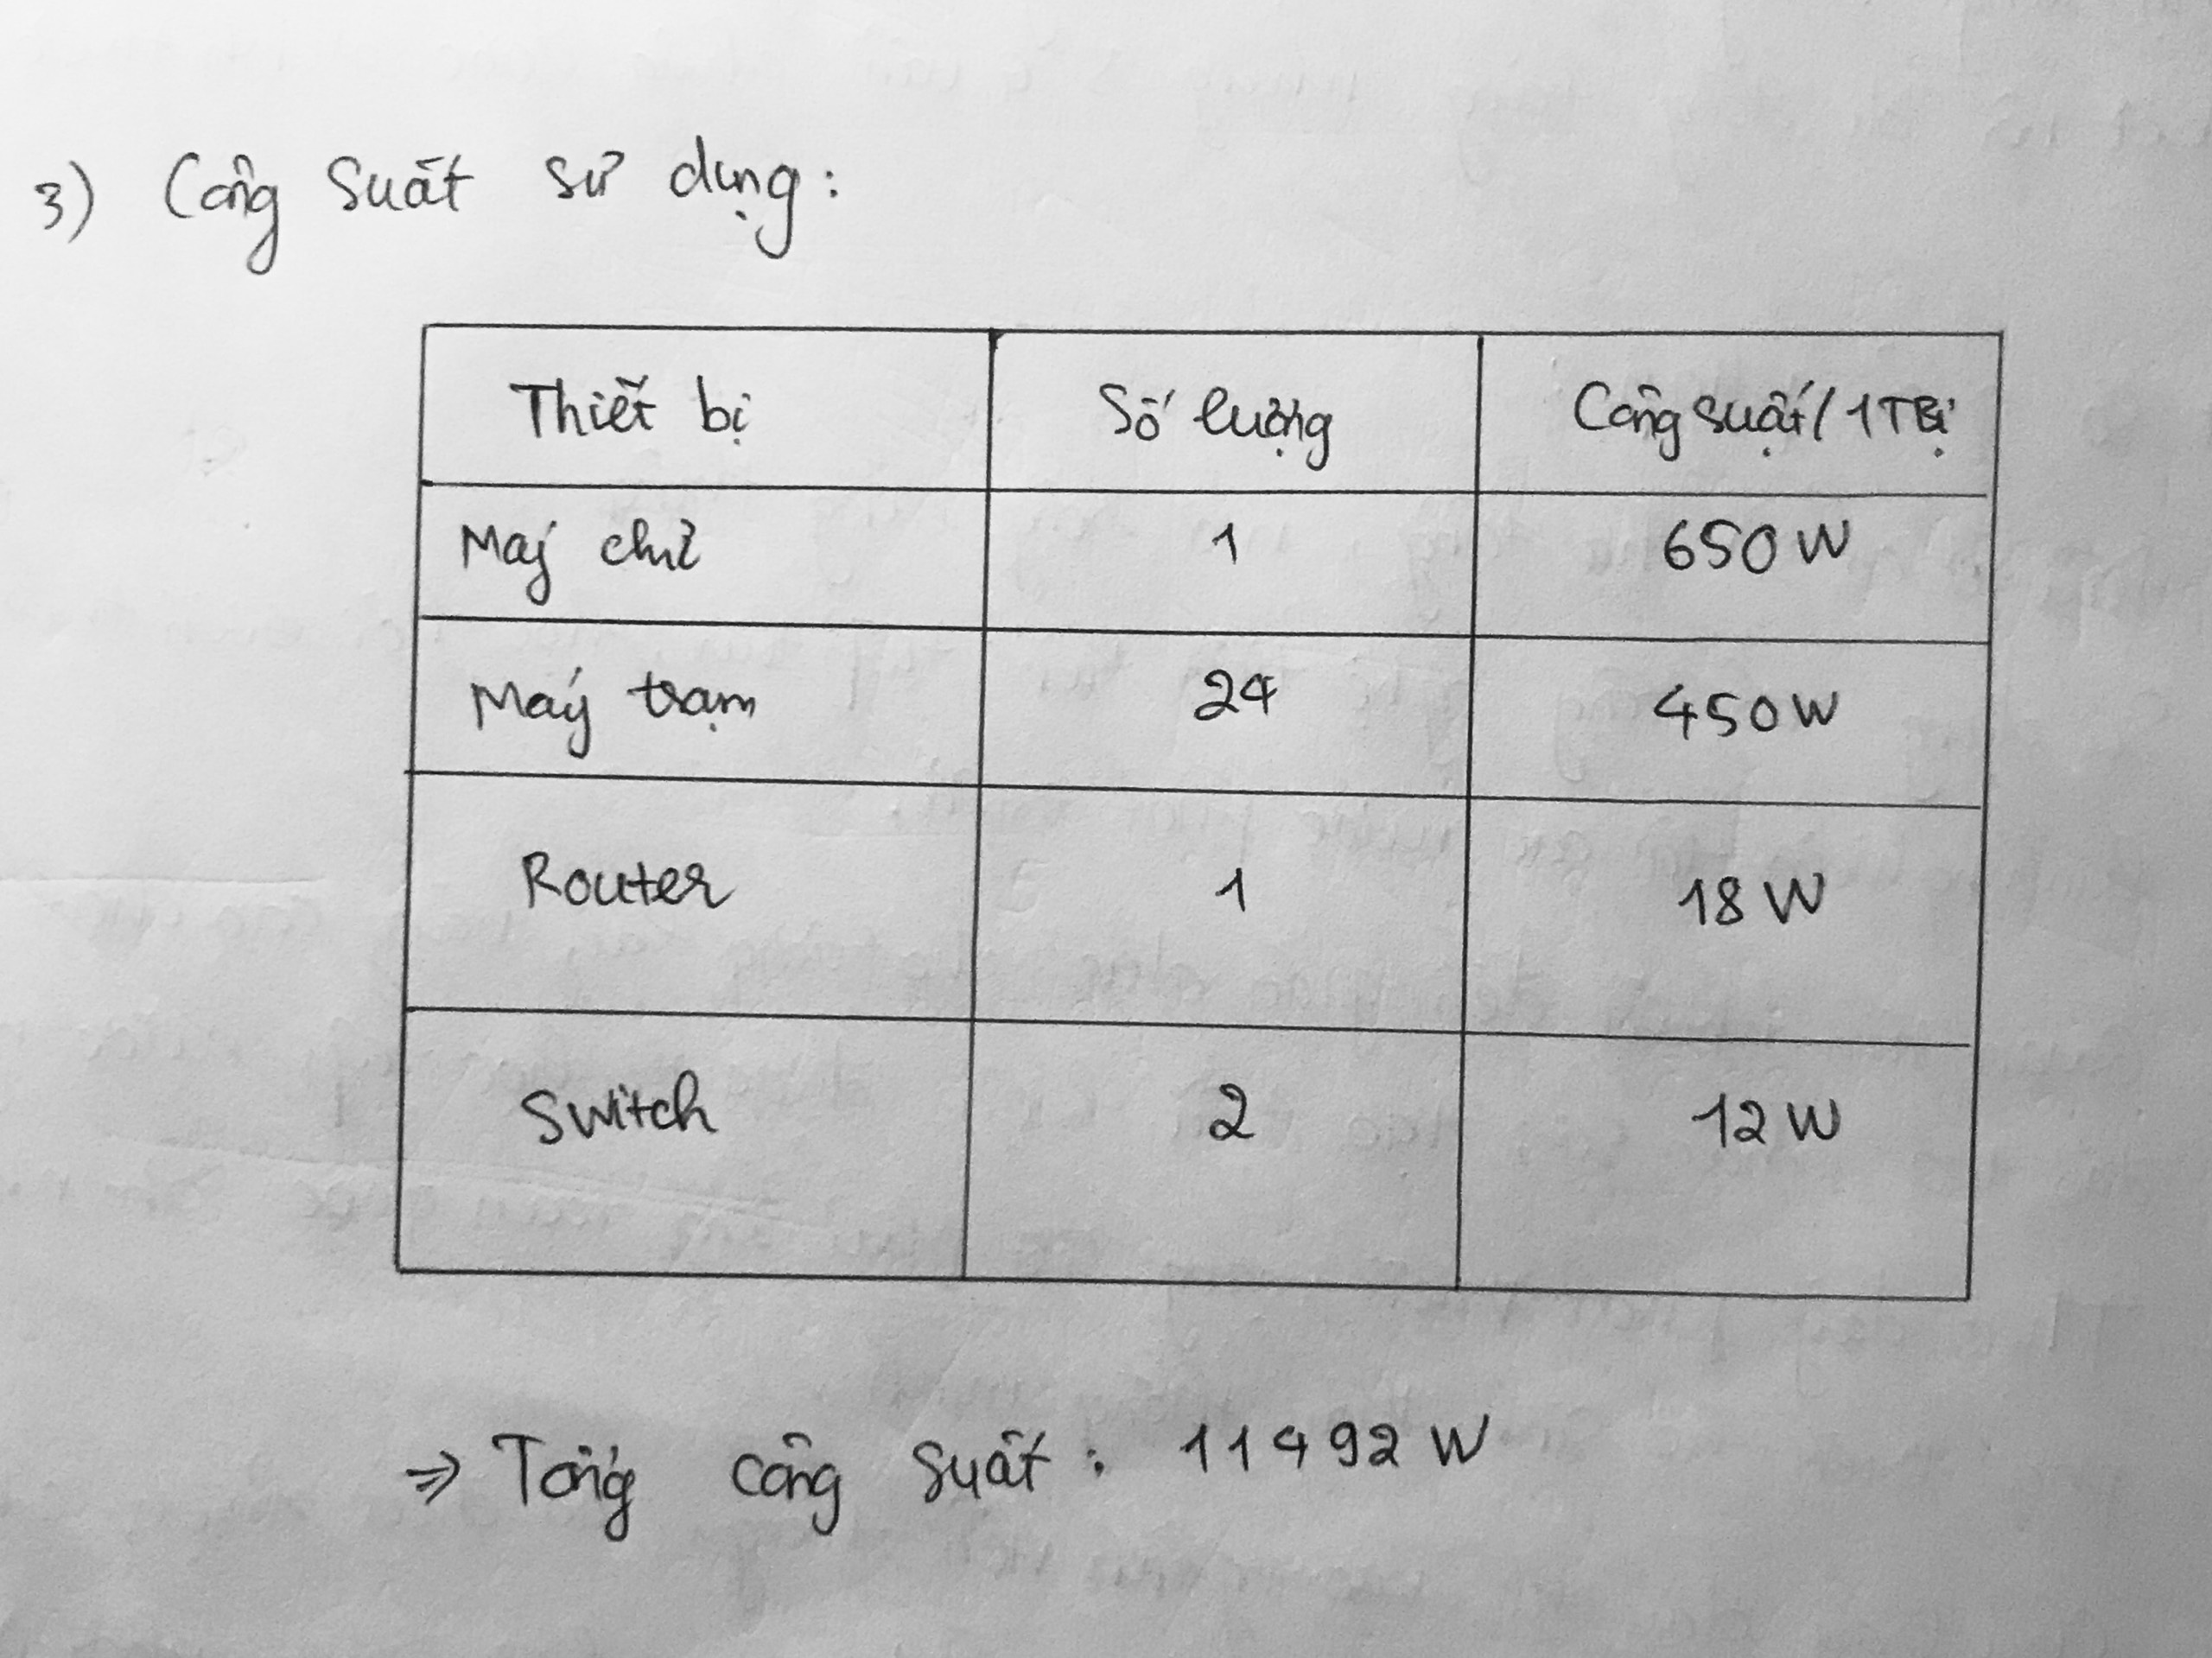 3) Công suất sử dụng:
Thiết bị Số lượng Công suất/1TBị
Máy chủ 1 650W
Máy trạm 24 450W
Router 1 18W
Switch 2 12W
⇒ Tổng công suất: 11492W